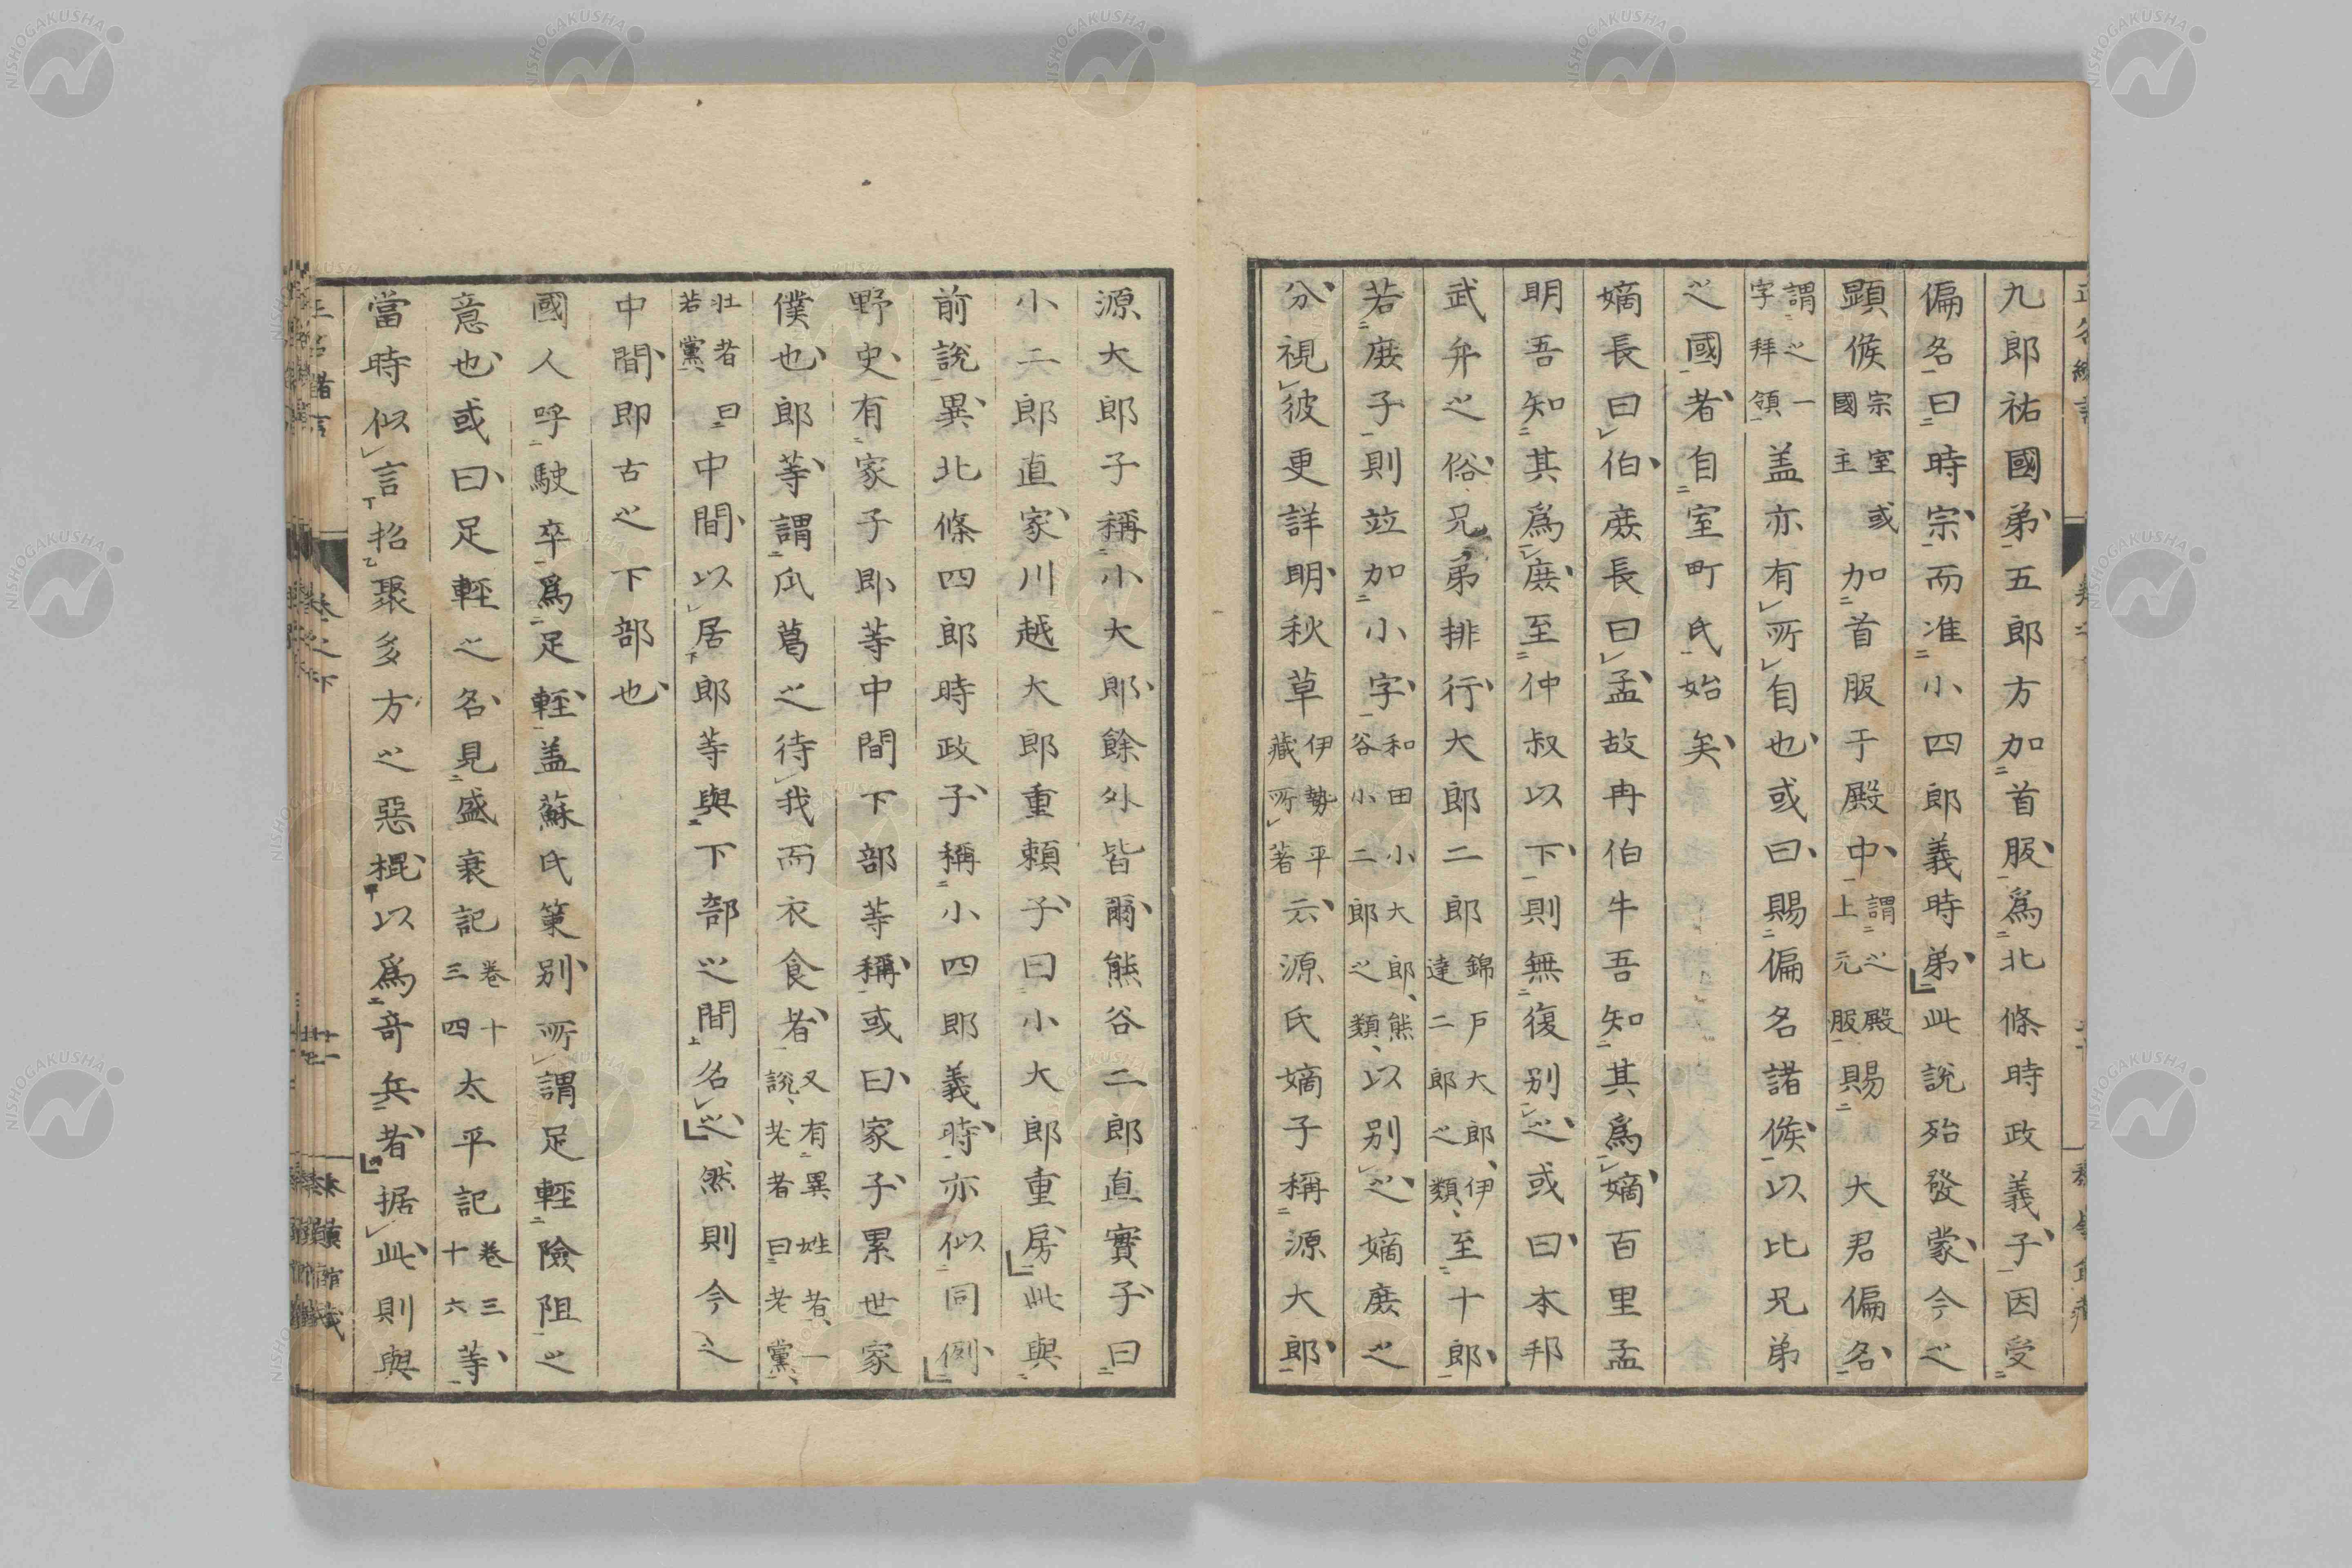 九郎祐國弟五郎方加首服爲北條時政義子因受
偏名曰時宗而准小四郎義時弟此說殆發蒙今之
顕候宗室國主或加首服于殿中謂之殿上元服賜 大君偏名
謂之一字拜領蓋亦有所自也或曰賜偏名諸候以比兄弟
之國者自室町氏始矣
嫡長曰伯庶長曰孟故冉伯牛吾知其爲嫡百里孟
明吾知其爲庶至仲叔以下則無復別之或曰本邦
武弁之俗兄弟排行大郎二郎錦戸大郎、伊達二郎之類、至十郎
若庶子則竝加小字和田小大郎、熊谷小二郎之類、以別之嫡庶之
分視彼更詳明秋草伊勢平藏所著云源氏嫡子稱源大郎
源大郎子稱小大郎餘外皆爾熊谷二郎直實子曰
小二郎直家川越大郎重頼子曰小大郎重房此與
前說異北條四郎時政子稱小四郎義時亦似同例
野史有家子郎等中間下部等稱或曰家子累世家
僕也郎等謂瓜葛之待我而衣食者又有異姓者、一說、老者曰老黨、
壮者曰若黨中間以居郎等與下部之間名之然則今之
中間即古之下部也
國人呼駛卒爲足輕蓋蘇氏策別所謂足輕險阻之
意也或曰足輕之名見盛衰記卷十三四太平記卷三十六等
當時似言招聚多方之惡棍以爲奇兵者据此則與
卷之下